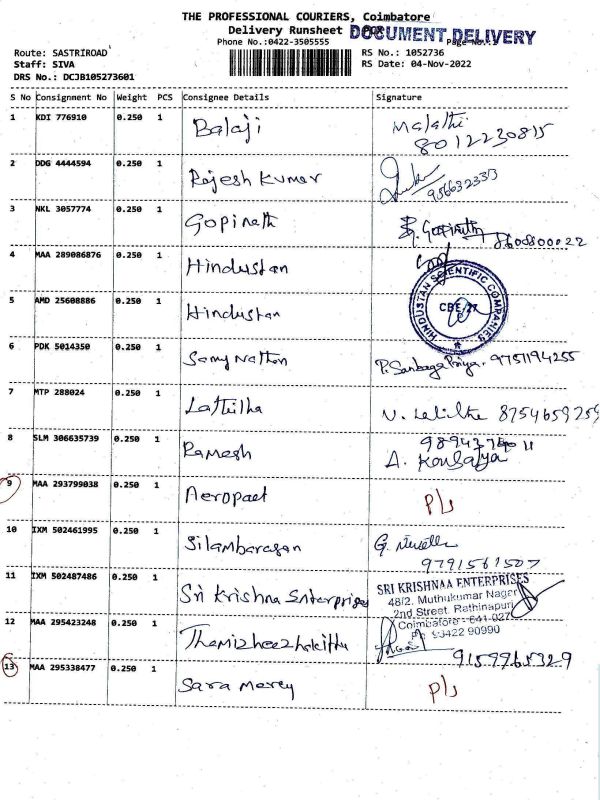 THE PROFESSIONAL COURIERS, Coimbatore
Delivery Runsheet
DOCUMENT DELIVERY
Phone No.:0422-3505555
Page No.:
Route: SASTRIROAD
RS No.: 1052736
Staff: SIVA
RS Date: 04-Nov-2022
DRS No.: DCJB105273601
S No Consignment No Weight PCS Consignee Details Signature
1 KDI 776910 0.250 1 Balaji Malathi
8012230815
2 DDG 4444594 0.250 1 Rajesh Kumar
3 NKL 3057774 0.250 1 Gopinath Gopinath
8608800022
4 MAA 289086876 0.250 1 Hindustan
HINDUSTAN SCIENTIFIC COMPANIES
CBE-27
5 AMD 25608886 0.250 1 Hindustan
6 PDK 5014350 0.250 1 Samy Nathan P. Sanbaga Priya. 9751194255
7 MTP 288024 0.250 1 Lathika 8754659259
8 SLM 306635739 0.250 1 Ramesh
A. Kousalya
9 MAA 293799038 0.250 1 Aeropaet P/s
10 IXM 502461995 0.250 1 Silambarasan G.
9791561507
11 IXM 502487486 0.250 1 Sri Krishna Enterprises
SRI KRISHNAA ENTERPRISES
48/2, Muthukumar Nagar
2nd Street, Rathinapuri
Coimbatore - 641 027
12 MAA 295423248 0.250 1
90422 90990
9159965329
13 MAA 295338477 0.250 1 Sara Mercy P/s